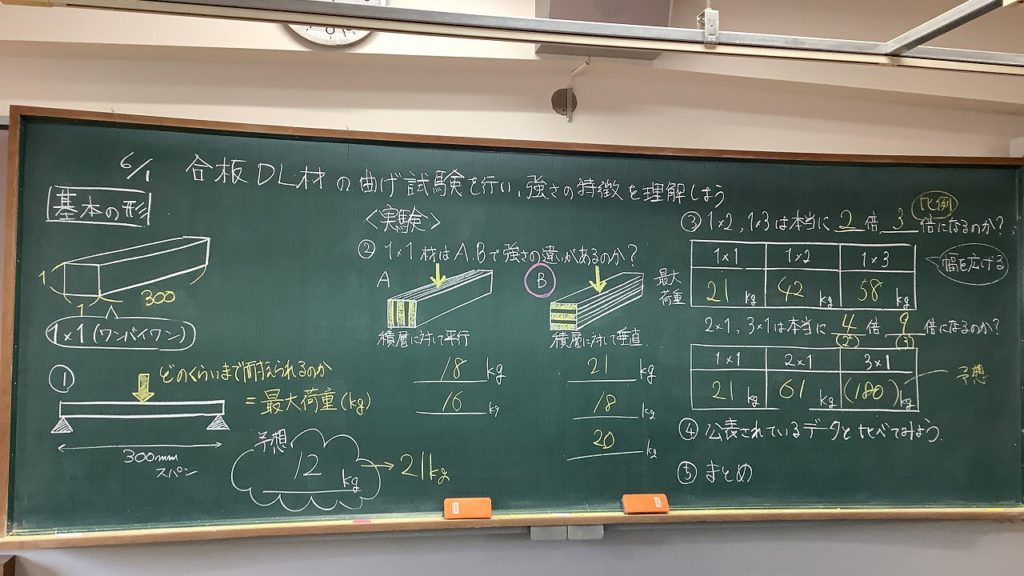 6/1 合板DL材の曲げ試験を行い、強さの特徴を理解しよう
基本の形
1
1
300
1×1(ワンバイワン)
①
どのくらいまで耐えられるのか
=最大荷重(kg)
300mm
スパン
予想
12 kg → 21kg
<実験>
②1×1材はA.Bで強さの違いがあるのか?
A
積層に対して平行
18 kg
16 kg
B
積層に対して垂直
21 kg
18 kg
20 kg
比例
③1×2,1×3は本当に 2 倍 3 倍になるのか?
幅を広げる
最大荷重
1×1 1×2 1×3
21 kg 42 kg 58 kg
2×1,3×1は本当に 4 倍 9 倍になるのか?
(2²) (3²)
1×1 2×1 3×1
21 kg 61 kg (180) kg
予想
④公表されているデータと比べてみよう.
⑤まとめ